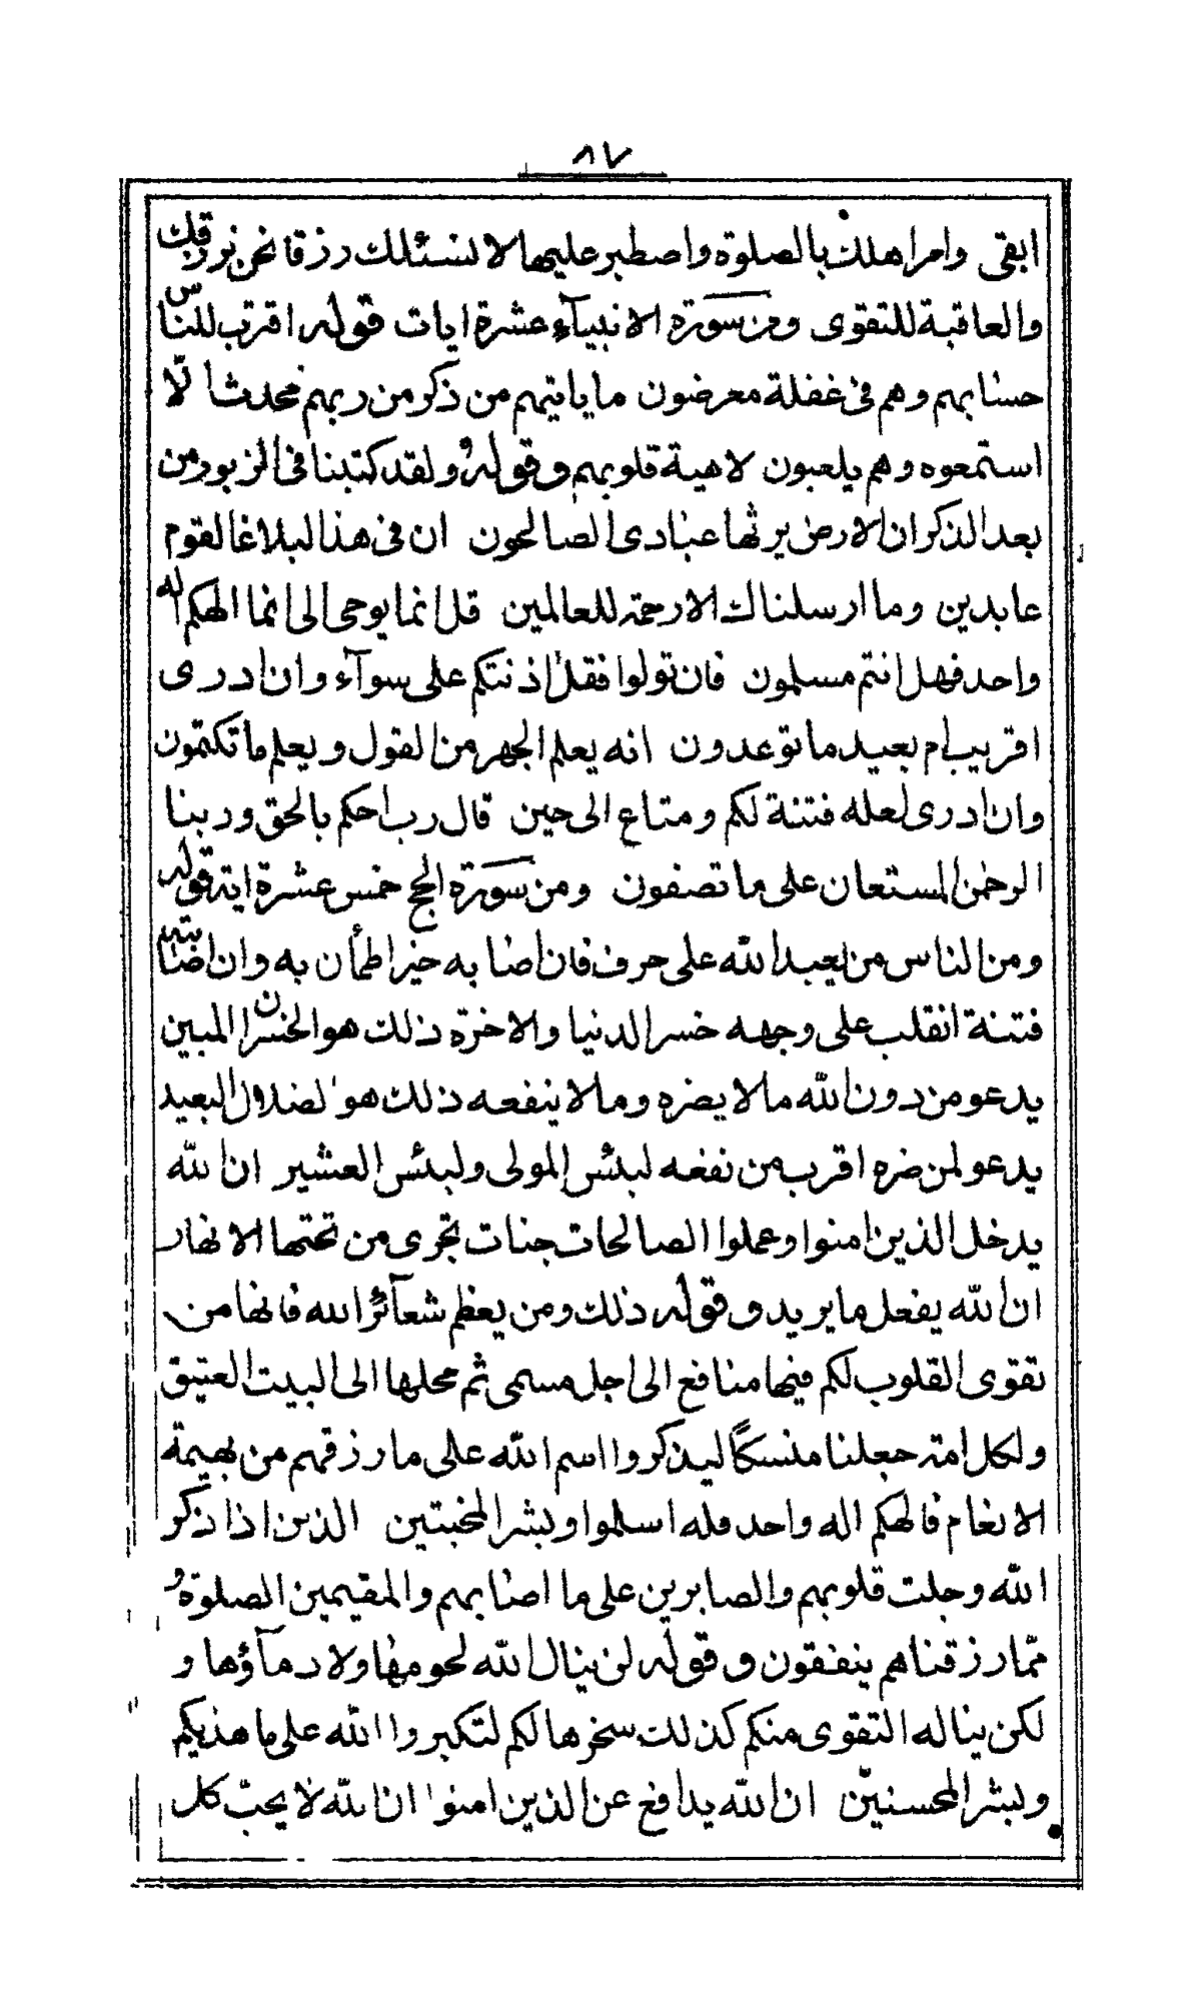 ٨٧
ابقى وامر اهلك بالصلوة واصطبر عليها لا نسئلك رزقا نحن نرزقك
والعاقبة للتقوى ومن سورة الانبيآء عشرة ايات قوله اقترب للناس
حسابهم وهم فى غفلة معرضون ما ياتيهم من ذكر من ربهم محدث الّا
استمعوه وهم يلعبون لاهية قلوبهم وقوله ولقد كتبنا فى الزبور من
بعد الذكر ان الارض يرثها عبادى الصالحون ان فى هذا لبلاغا لقوم
عابدين وما ارسلناك الا رحمة للعالمين قل انما يوحى الى انما الهكم اله
واحد فهل انتم مسلمون فان تولوا فقل اذنتكم على سوآء وان ادرى
اقريب ام بعيد ما توعدون انه يعلم الجهر من القول ويعلم ما تكتمون
وان ادرى لعله فتنة لكم ومتاع الى حين قال رب احكم بالحق وربنا
الرحمن المستعان على ما تصفون ومن سورة الحج خمس عشرة اية قوله
ومن الناس من يعبد الله على حرف فان اصابه خير اطمأن به وان اصابته
فتنة انقلب على وجهه خسر الدنيا والاخرة ذلك هو الخسران المبين
يدعو من دون الله ما لا يضره وما لا ينفعه ذلك هو الضلال البعيد
يدعو لمن ضره اقرب من نفعه لبئس المولى ولبئس العشير ان الله
يدخل الذين امنوا وعملوا الصالحات جنات تجرى من تحتها الانهار
ان الله يفعل ما يريد وقوله ذلك ومن يعظم شعآئر الله فانها من
تقوى القلوب لكم فيها منافع الى اجل مسمى ثم محلها الى البيت العتيق
ولكل امة جعلنا منسكًا ليذكروا اسم الله على ما رزقهم من بهيمة
الانعام فالهكم اله واحد فله اسلموا وبشر المخبتين الذين اذا ذكر
الله وجلت قلوبهم والصابرين على ما اصابهم والمقيمين الصلوة و
ممّا رزقناهم ينفقون وقوله لن ينال الله لحومها ولا دمآؤها و
لكن يناله التقوى منكم كذلك سخرها لكم لتكبروا الله على ما هديكم
وبشر المحسنين ان الله يدافع عن الذين امنوا ان الله لا يحبّ كل